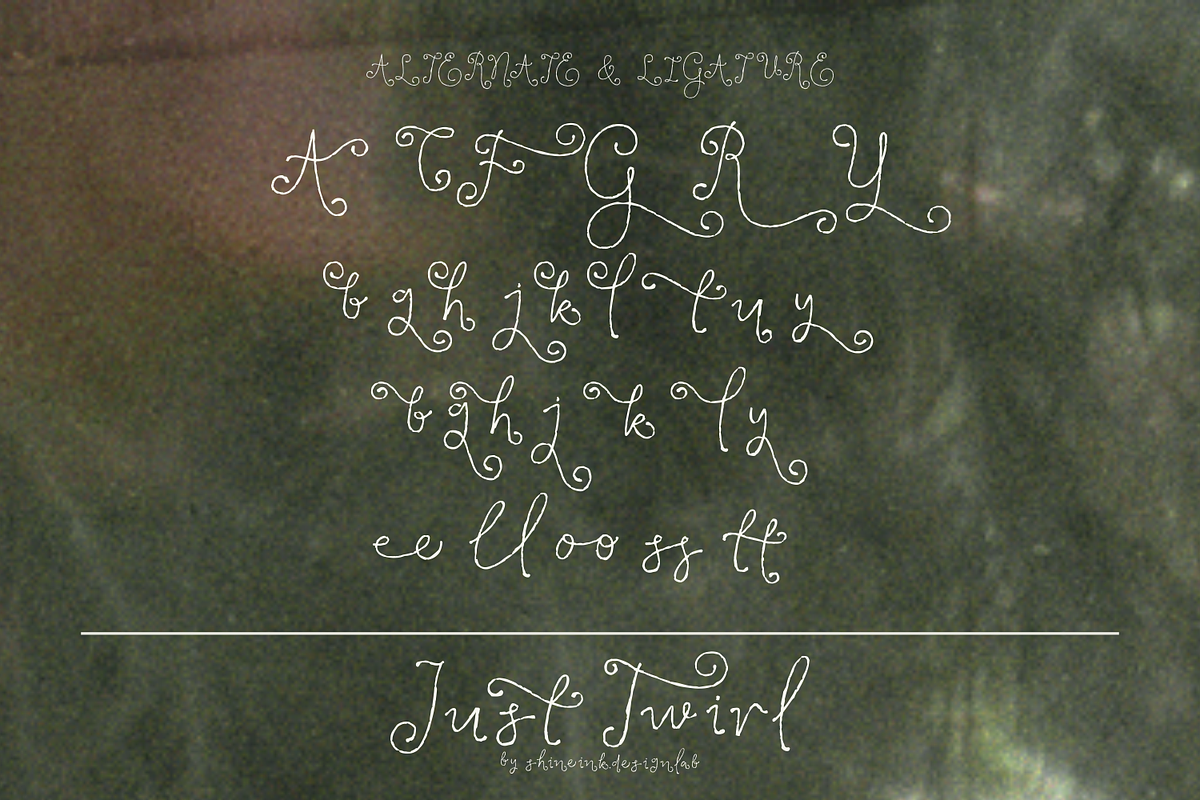 ALTERNATE & LIGATURE
A T F G R Y
b g h j k l t u y
b g h j k l y
ee ll oo ss tt
Just Twirl
by shineink.designlab